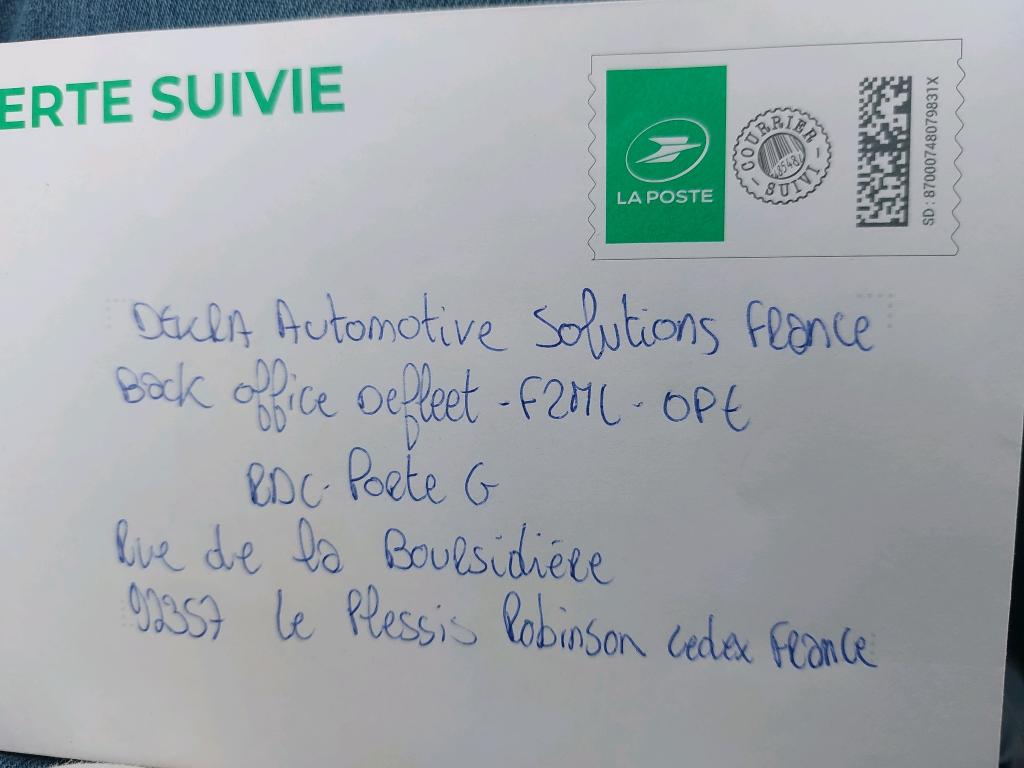 ERTE SUIVIE
LA POSTE
COURRIER
SUIVI
SD : 87000748079831X
DEKRA Automotive Solutions France
Back office Defleet - F2ML - OPE
RDC - Porte G
Rue de la Boursidière
92357 Le Plessis Robinson Cedex France